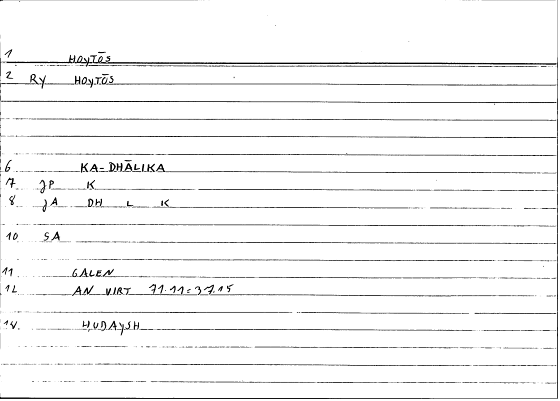 1 HOYTŌS
2 RY HOYTŌS
6 KA-DHĀLIKA
7 JP K
8 JA DH L K
10 SA
11 GALEN
12 AN VIRT 71.11=37.15
14. ḤUDAYSH